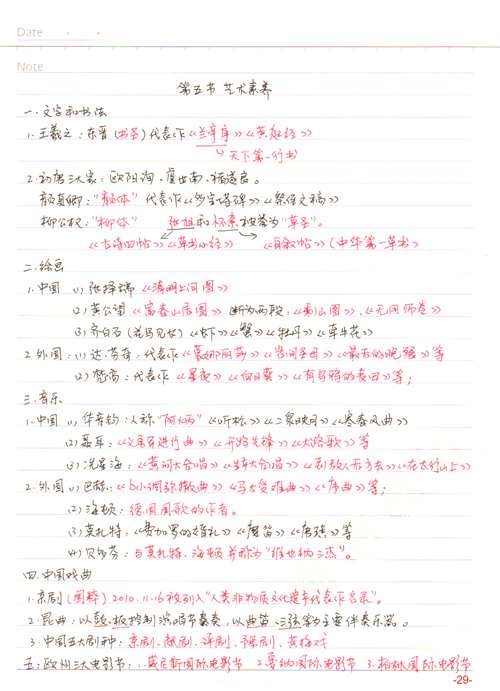 Date
Note
第五节 艺术素养
一.文字和书法
1.王羲之:东晋(书圣)代表作《兰亭序》《黄庭经》
天下第一行书
2.初唐三大家:欧阳询、虞世南、褚遂良。
颜真卿:"颜体" 代表作《多宝塔碑》《祭侄文稿》
柳公权:"柳体" 张旭和怀素被誉为"草圣"。
《古诗四帖》《草书心经》 《自叙帖》(中华第一草书)
二.绘画
1.中国 (1)张择端《清明上河图》
(2)黄公望《富春山居图》 断为两段,《剩山图》、《无用师卷》
(3)齐白石《虾》《蟹》《牡丹》《牵牛花》
2.外国:(1)达·芬奇:代表作《蒙娜丽莎》《岩间圣母》《最后的晚餐》等
(2)梵高:代表作《星夜》《向日葵》《有乌鸦的麦田》等;
三.音乐
1.中国 (1)华彦钧:人称"阿炳"《听松》《二泉映月》《寒春风曲》
(2)聂耳:《义勇军进行曲》《开路先锋》《大路歌》等
(3)冼星海:《黄河大合唱》《生产大合唱》《到敌人后方去》《在太行山上》
2.外国 (1)巴赫:《b小调弥撒曲》《马太受难曲》《序曲》等;
(2)海顿:德国国歌的作者。
(3)莫扎特:《费加罗的婚礼》《魔笛》《唐璜》等
(4)贝多芬:与莫扎特、海顿并称为"维也纳三杰"。
四.中国戏曲
1.京剧(国粹)2010.11.16被列入"人类非物质文化遗产代表作名录"。
2.昆曲:以鼓、板控制演唱节奏,以曲笛、三弦等为主要伴奏乐器。
3.中国五大剧种:京剧、越剧、评剧、豫剧、黄梅戏
五.欧州三大电影节:1.威尼斯国际电影节 2.戛纳国际电影节 3.柏林国际电影节
-29-